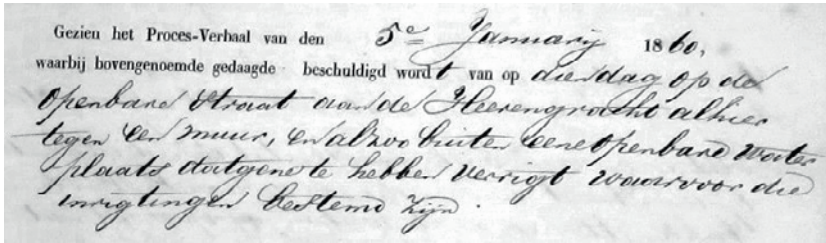 Gezien het Proces-Verhaal van den 5e January 1860,
waarbij bovengenoemde gedaagde beschuldigd wordt van op dien dag op de
openbare straat aan de Heerengracht alhier
tegen een muur, en alzoo buiten eene openbare water
plaats datgene te hebben verrigt waarvoor die
inrigtingen bestemd zijn.